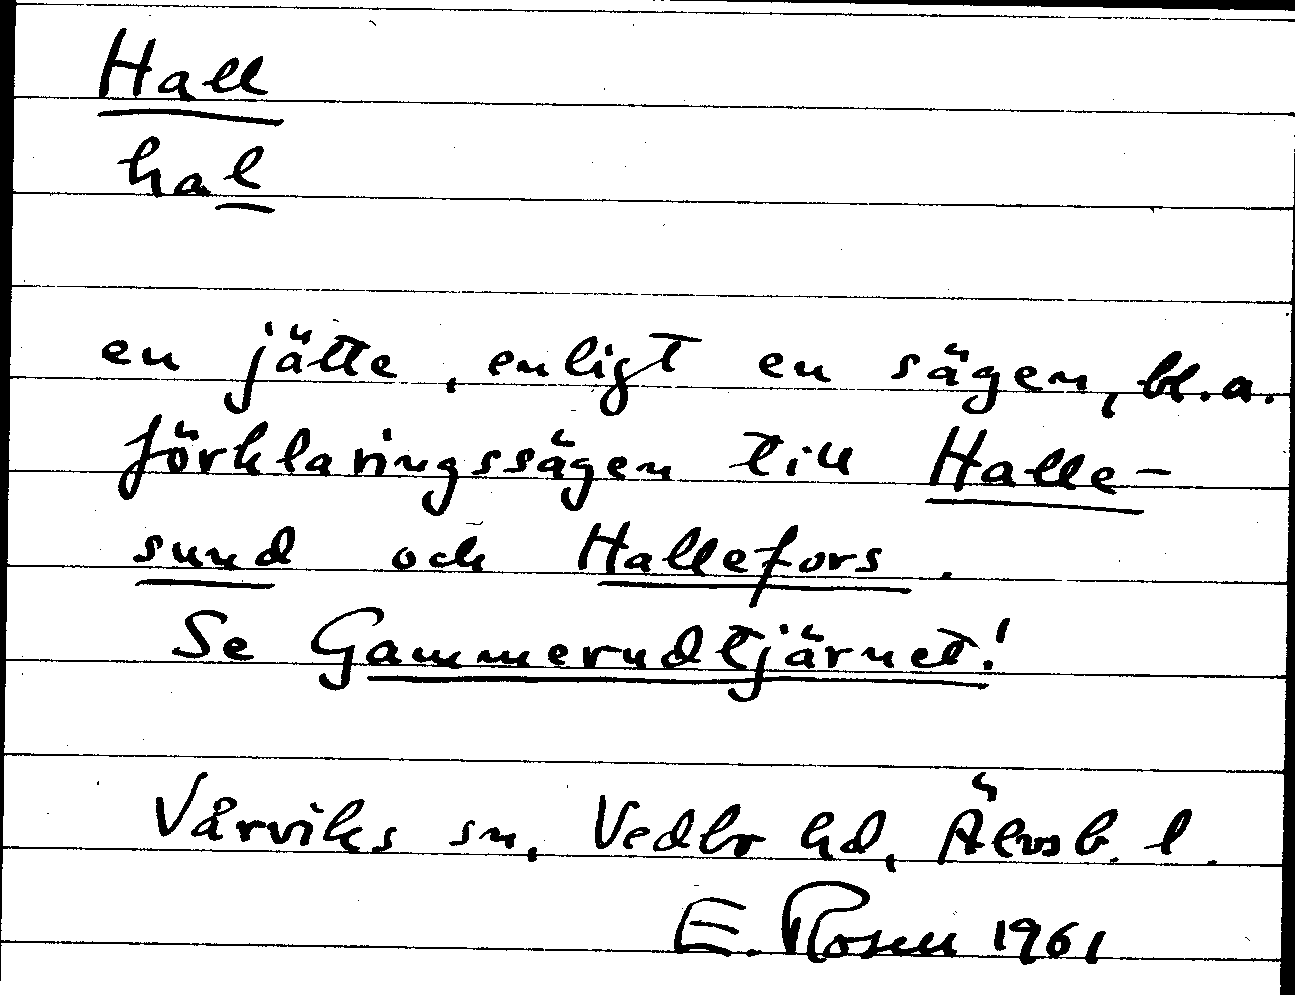 Hall
hal
en jätte, enligt en sägen, bl.a.
förklaringssägen till Halle-
sund och Hallefors.
Se Gammerudtjärnet!
Vårviks sn, Vedbo hd, Älvsb. l.
E. Rosen 1961